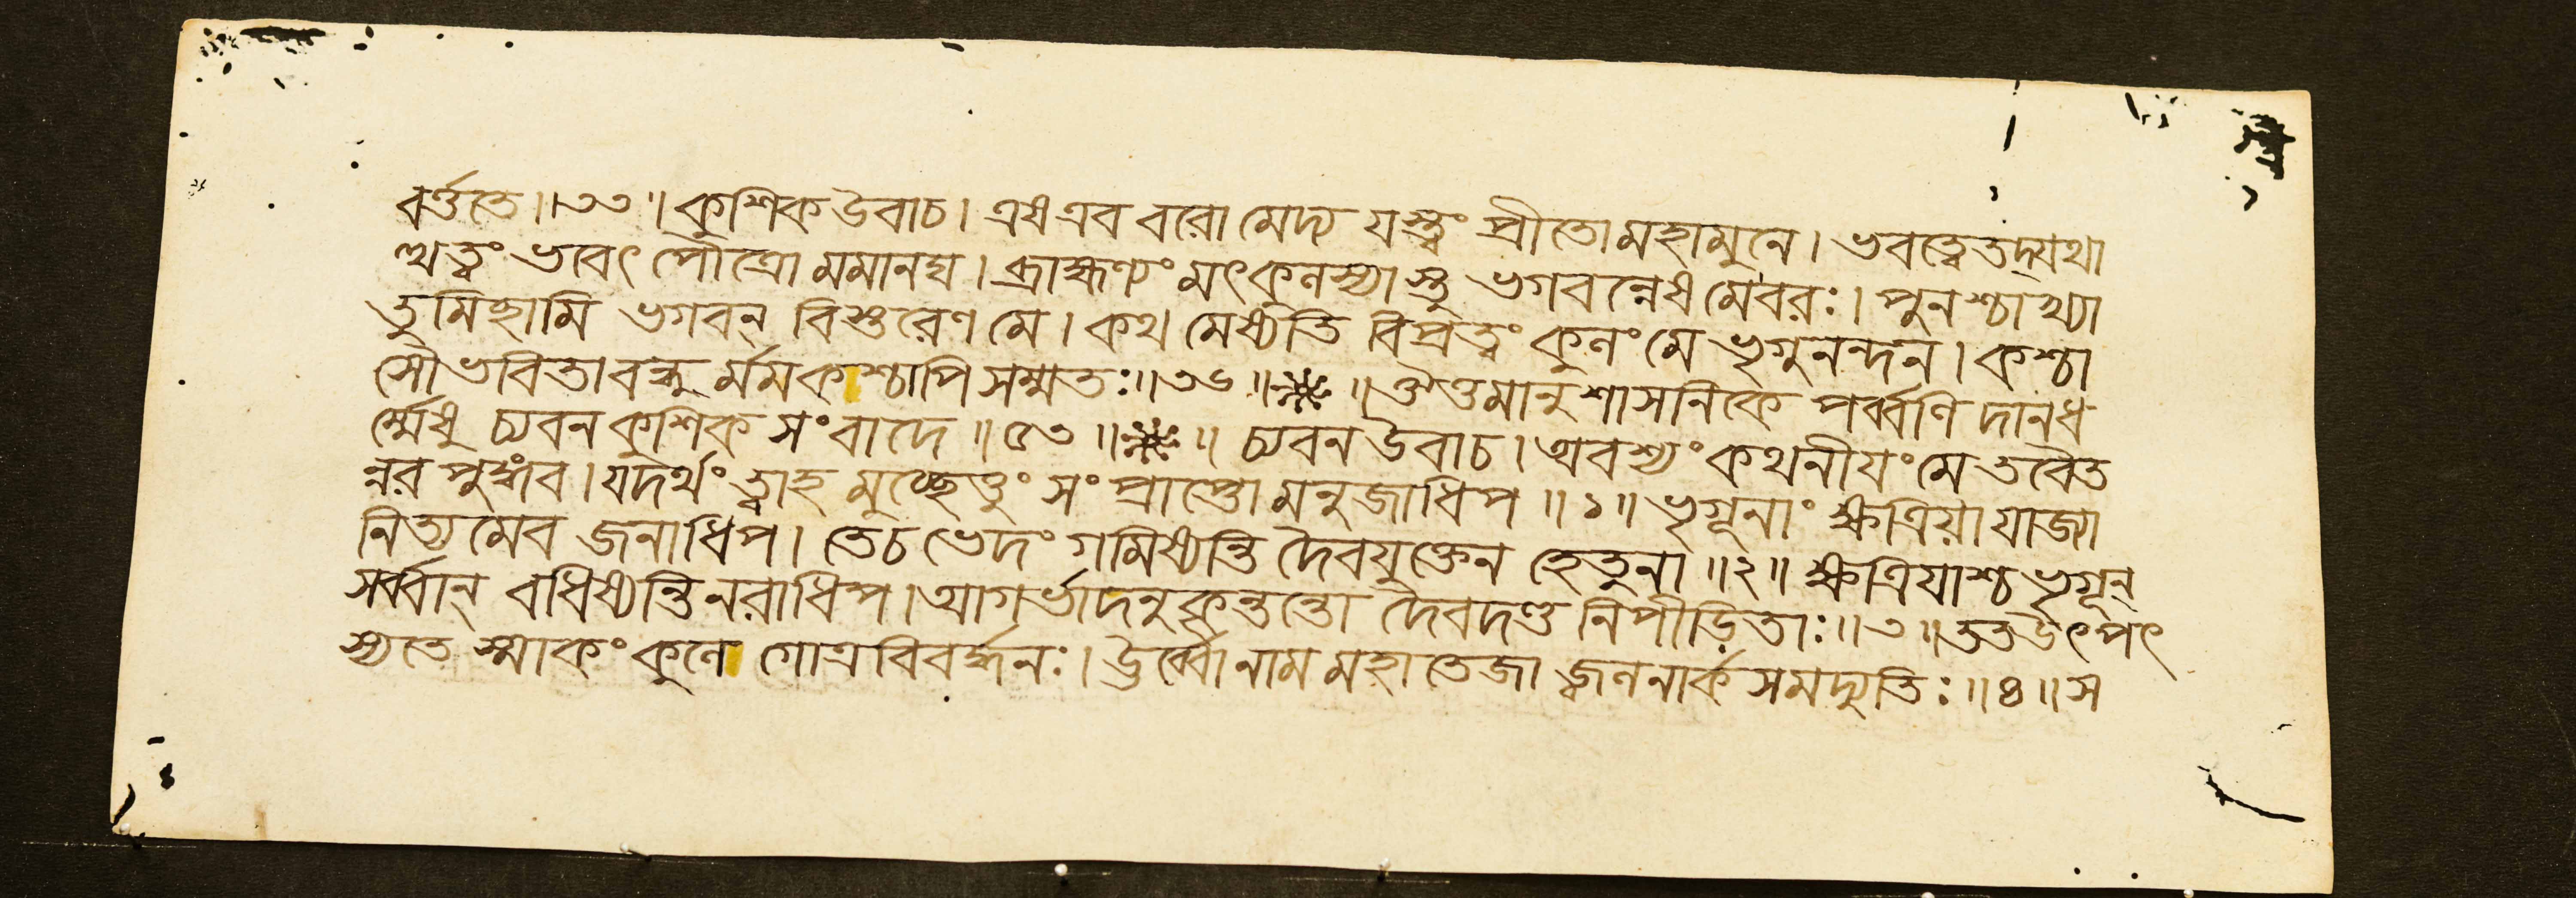 বর্ত্ততে॥৩৩॥কুশিক উবাচ। এষ এব বরো মেদ্য যস্ত্বং প্রীতো মহামুনে। ভবত্বেতদ্যথা
ত্থত্বং ভাবৎ পৌত্রো মমানঘ। ব্রাহ্মণ্যং মৎকুলস্যাস্তু ভগবন্নেষ মে বরঃ। পুনশ্চাখ্যা
তুমিচ্ছামি ভগবন্ বিস্তরেণ মে। কথমেষ্যতি বিপ্রত্বং কুলং মে ভৃগুনন্দন। কশ্চা
সৌ ভবিতা বন্ধুর্ম্মম কশ্চাপি সম্মতঃ॥৩৬॥ ॥ঔত্তমানুশাসনিকে পর্ব্বণি দানধ
র্ম্মেষু চ্যবন কুশিক সংবাদে॥৫৩॥ ॥ চ্যবন উবাচ। অবশ্যং কথনীয়ং মে তবৈত
ন্নর পুঙ্গব। যদর্থং ত্বাহ মুচ্ছেত্তুং সংপ্রাপ্তো মনুজাধিপ॥১॥ ভৃগূনাং ক্ষত্রিয়া যাজ্যা
নিত্যমেব জনাধিপ। তে চ ভেদং গমিষ্যন্তি দৈবযুক্তেন হেতুনা॥২॥ ক্ষত্রিয়াশ্চ ভৃগূন্
সর্ব্বান্ বধিষ্যন্তি নরাধিপ। আগর্ভাদনুকৃন্তন্তো দৈবদণ্ড নিপীড়িতাঃ॥৩॥ তত উৎপৎ
স্যতে স্মাকং কুলে গোত্রবিবর্দ্ধনঃ। ঔর্ব্বো নাম মহাতেজা জ্বলনার্ক সমদ্যুতিঃ॥৪॥ স